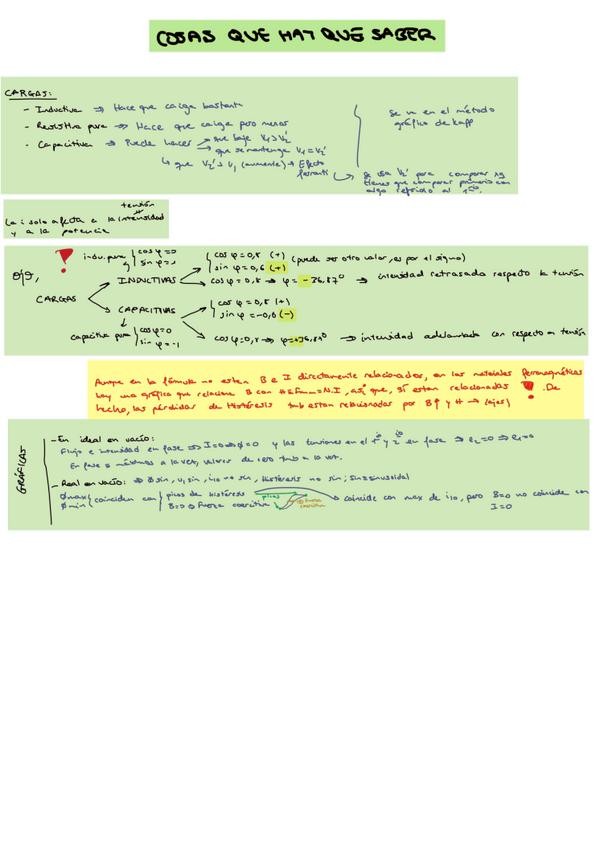 COSAS QUE HAY QUE SABER
CARGAS:
- Inductiva => Hace que caiga bastante
- Resistiva pura => Hace que caiga pero menos
- Capacitiva => Puede hacer que baje V1>V2'
que se mantenga V1=V2'
que V2'>V1 (aumente) → Efecto Ferranti
Se ve en el método
gráfico de Kapp
se usa V2' para comparar xq
tienes que comparar primario con
algo referido al 1rio
tensión
La i solo afecta a la intensidad
y a la potencia
ojo,
!
CARGAS
induc. pura cos φ=0
sin φ=1
INDUCTIVAS
cos φ=0,8 (+) (puede ser otro valor, es por el signo)
sin φ=0,6 (+)
cos φ=0,8 → φ=-36,87º → intensidad retrasada respecto la tensión
CAPACITIVAS
cos φ=0,8 (+)
sin φ=-0,6 (-)
capacitiva pura cos φ=0
sin φ=-1
cos φ=0,8 → φ=+36,87º → intensidad adelantada con respecto a tensión
Aunque en la fórmula no esten B e I directamente relacionados, en los materiales ferromagnéticos
hay una gráfica que relaciona B con H y Fmm=N.I, así que, sí estan relacionadas ! . De
hecho, las pérdidas de Histéresis tmb estan relacionadas por B↑ y H → (ejes)
GRÁFICAS
- En ideal en vacío:
Flujo e intensidad en fase => I=0 => Ø=0 y las tensiones en el 1rio y 2rio en fase => e2=0 => e1=0
En fase => máximos a la vez, valores de cero tmb a la vez.
- Real en vacío: => Ø sin, u1 sin, i10 no sin, Histéresis no sin; sin=sinusoidal
Ømax
Ømin
coinciden con
picos de histéresis
B=0 => Fuerza coercitiva
picos
Fuerza coercitiva
coincide con max de i10, pero B=0 no coincide con
I=0